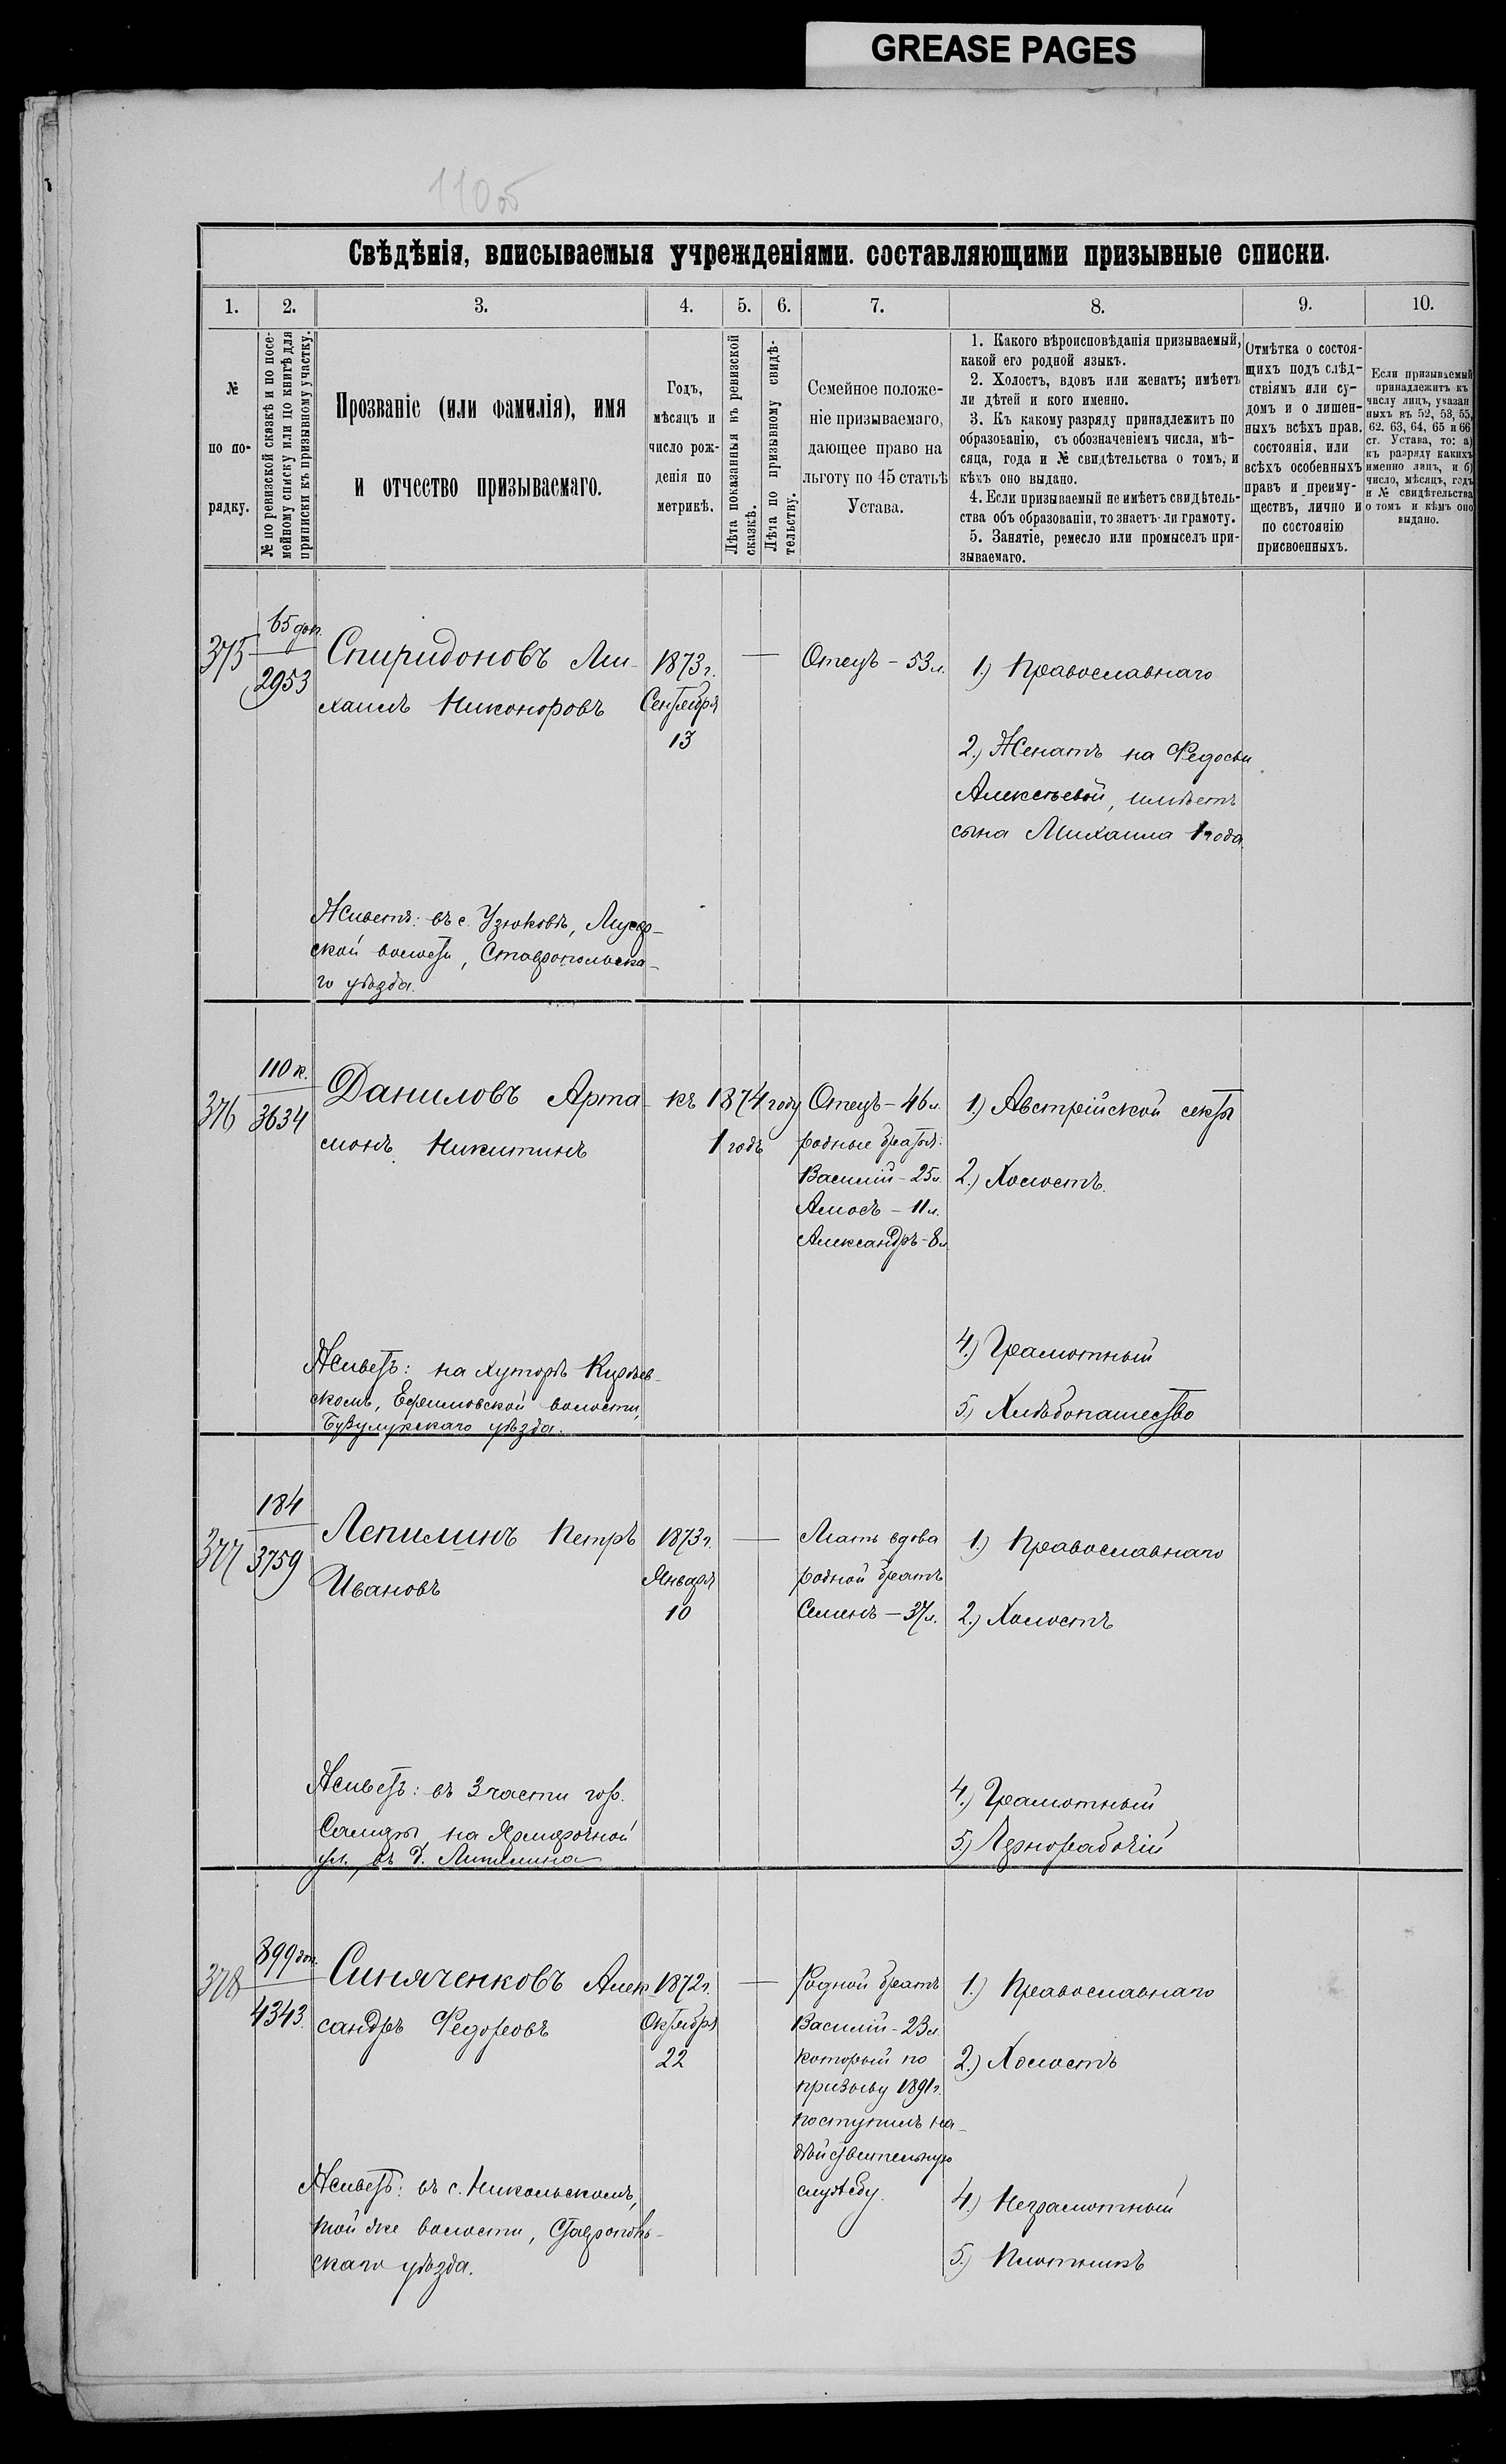 GREASE PAGES
110об
Свѣдѣнія, вписываемыя учрежденіями. составляющими призывные списки.
1. 2. 3. 4. 5. 6. 7. 8. 9. 10.
№
по по-
рядку.
№ по ревизской сказкѣ и по посе-
мейному списку или по книгѣ для
приписки къ призывному участку.
Прозваніе (или фамилія), имя
и отчество призываемаго.
Годъ,
мѣсяцъ и
число рож-
денія по
метрикѣ.
Лѣта показанныя въ ревизской
сказкѣ.
Лѣта по призывному свидѣ-
тельству.
Семейное положе-
ніе призываемаго,
дающее право на
льготу по 45 статьѣ
Устава.
1. Какого вѣроисповѣданія призываемый,
какой его родной языкъ.
2. Холостъ, вдовъ или женатъ; имѣетъ
ли дѣтей и кого именно.
3. Къ какому разряду принадлежитъ по
образованію, съ обозначеніемъ числа, мѣ-
сяца, года и № свидѣтельства о томъ, и
кѣмъ оно выдано.
4. Если призываемый не имѣетъ свидѣтель-
ства объ образованіи, то знаетъ-ли грамоту.
5. Занятіе, ремесло или промыселъ при-
зываемаго.
Отмѣтка о состоя-
щихъ подъ слѣд-
ствіямъ или су-
домъ и о лишен-
ныхъ всѣхъ прав.
состоянія, или
всѣхъ особенныхъ
правъ и преиму-
ществъ, лично и
по состоянію
присвоенныхъ.
Если призываемый
принадлежитъ къ
числу лицъ, указан
ныхъ въ 52, 53, 55,
62. 63, 64, 65 и 66
ст. Устава, то: а)
къ разряду какихъ
именно лицъ, и б)
число, мѣсяцъ, годъ
и № свидѣтельства
о томъ и кѣмъ оно
выдано.
375
65 доп.
2953
Спиридоновъ Ми-
хаилъ Никоноровъ
1873 г.
Сентября
13
—
Отецъ - 53 л.
1.) Православнаго
2.) Женатъ на Федосьи
Алексѣевой, имѣетъ
сына Михаила 1 года.
Живетъ: въ с. Узюковѣ,
ской волости, Ставропольска-
го уѣзда.
376
110 к.
3634
Даниловъ Арта-
монъ Никитинъ
къ 1874 году
1 годъ
Отецъ - 46 л.
родные братья:
Василій - 25 л.
Амосъ - 11 л.
Александръ - 8 л.
1.) Австрійской секты
2.) Холостъ.
4.) Грамотный
5.) Хлѣбопашество
Живетъ: на хуторѣ
скомъ, Ефимовской волости,
Бузулукскаго уѣзда.
377
184
3759
Лепилинъ Петръ
Ивановъ
1873 г.
Января
10
—
Мать вдова
родной братъ
Семенъ - 37 л.
1.) Православнаго
2.) Холостъ
4.) Грамотный
5.) Чернорабочій
Живетъ: въ 3 части гор.
Самары, на Ярмарочной
ул. въ д.
378
899 доп.
4343.
Синяченковъ Алек-
сандръ Федоровъ
1872 г.
Октября
22
—
Родной братъ
Василій - 23 л.
который по
призыву 1891 г.
поступилъ на
дѣйствительную
службу.
1.) Православнаго
2.) Холостъ
4.) Неграмотный
5.) Плотникъ
Живетъ: въ с. Никольскомъ,
той же волости, Ставрополь-
скаго уѣзда.